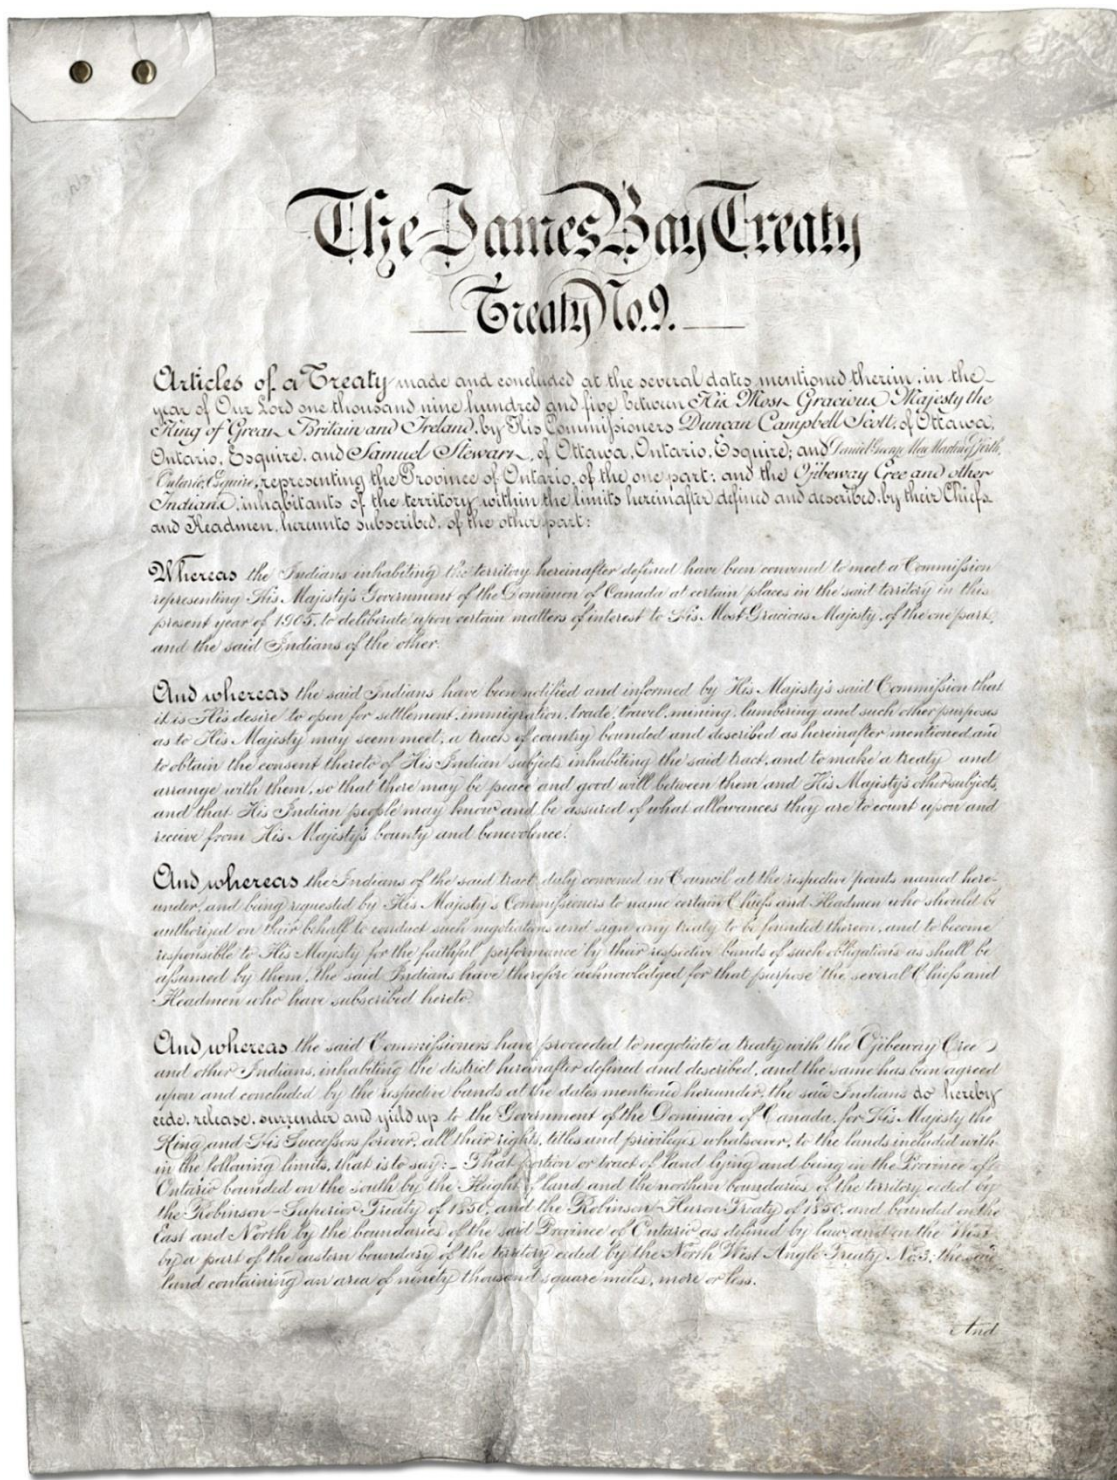 The James Bay Treaty
Treaty No. 9.
Articles of a Treaty made and concluded at the several dates mentioned therein, in the
year of Our Lord one thousand nine hundred and five between His Most Gracious Majesty the
King of Great Britain and Ireland, by His Commissioners Duncan Campbell Scott, of Ottawa,
Ontario, Esquire, and Samuel Stewart, of Ottawa, Ontario, Esquire; and Daniel George MacMartin, of Perth,
Ontario, Esquire, representing the Province of Ontario, of the one part: and the Ojibeway Cree and other
Indians, inhabitants of the territory within the limits hereinafter defined and described, by their Chiefs
and Headmen, hereunto subscribed, of the other part:
Whereas the Indians inhabiting the territory hereinafter defined have been convened to meet a Commission
representing His Majesty's Government of the Dominion of Canada at certain places in the said territory in this
present year of 1905, to deliberate upon certain matters of interest to His Most Gracious Majesty, of the one part,
and the said Indians of the other.
And whereas the said Indians have been notified and informed by His Majesty's said Commission that
it is His desire to open for settlement, immigration, trade, travel, mining, lumbering and such other purposes
as to His Majesty may seem meet, a tract of country bounded and described as hereinafter mentioned and
to obtain the consent thereto of His Indian subjects inhabiting the said tract, and to make a treaty and
arrange with them, so that there may be peace and good will between them and His Majesty's other subjects,
and that His Indian people may know and be assured of what allowances they are to count upon and
receive from His Majesty's bounty and benevolence.
And whereas the Indians of the said tract, duly convened in Council at the respective points named here-
under, and being requested by His Majesty's Commissioners to name certain Chiefs and Headmen who should be
authorized on their behalf to conduct such negotiations and sign any treaty to be founded thereon, and to become
responsible to His Majesty for the faithful performance by their respective bands of such obligations as shall be
assumed by them, the said Indians have therefore acknowledged for that purpose the several Chiefs and
Headmen who have subscribed hereto.
And whereas the said Commissioners have proceeded to negotiate a treaty with the Ojibeway Cree
and other Indians, inhabiting the district hereinafter defined and described, and the same has been agreed
upon and concluded by the respective bands at the dates mentioned hereunder, the said Indians do hereby
cede, release, surrender and yield up to the Government of the Dominion of Canada, for His Majesty the
King and His Successors forever, all their rights, titles and privileges whatsoever, to the lands included with-
in the following limits, that is to say:– That portion or tract of land lying and being in the Province of
Ontario bounded on the south by the Height of land and the northern boundaries of the territory ceded by
the Robinson-Superior Treaty of 1850, and the Robinson-Huron Treaty of 1850, and bounded on the
East and North by the boundaries of the said Province of Ontario as defined by law, and on the West
by a part of the eastern boundary of the territory ceded by the North West Angle Treaty No. 3; the said
land containing an area of ninety thousand square miles, more or less.
And